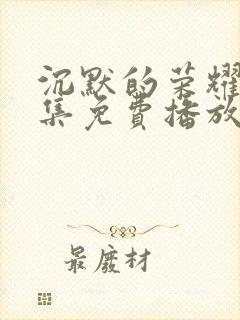 沉默的荣耀
集免費播放
最廢材